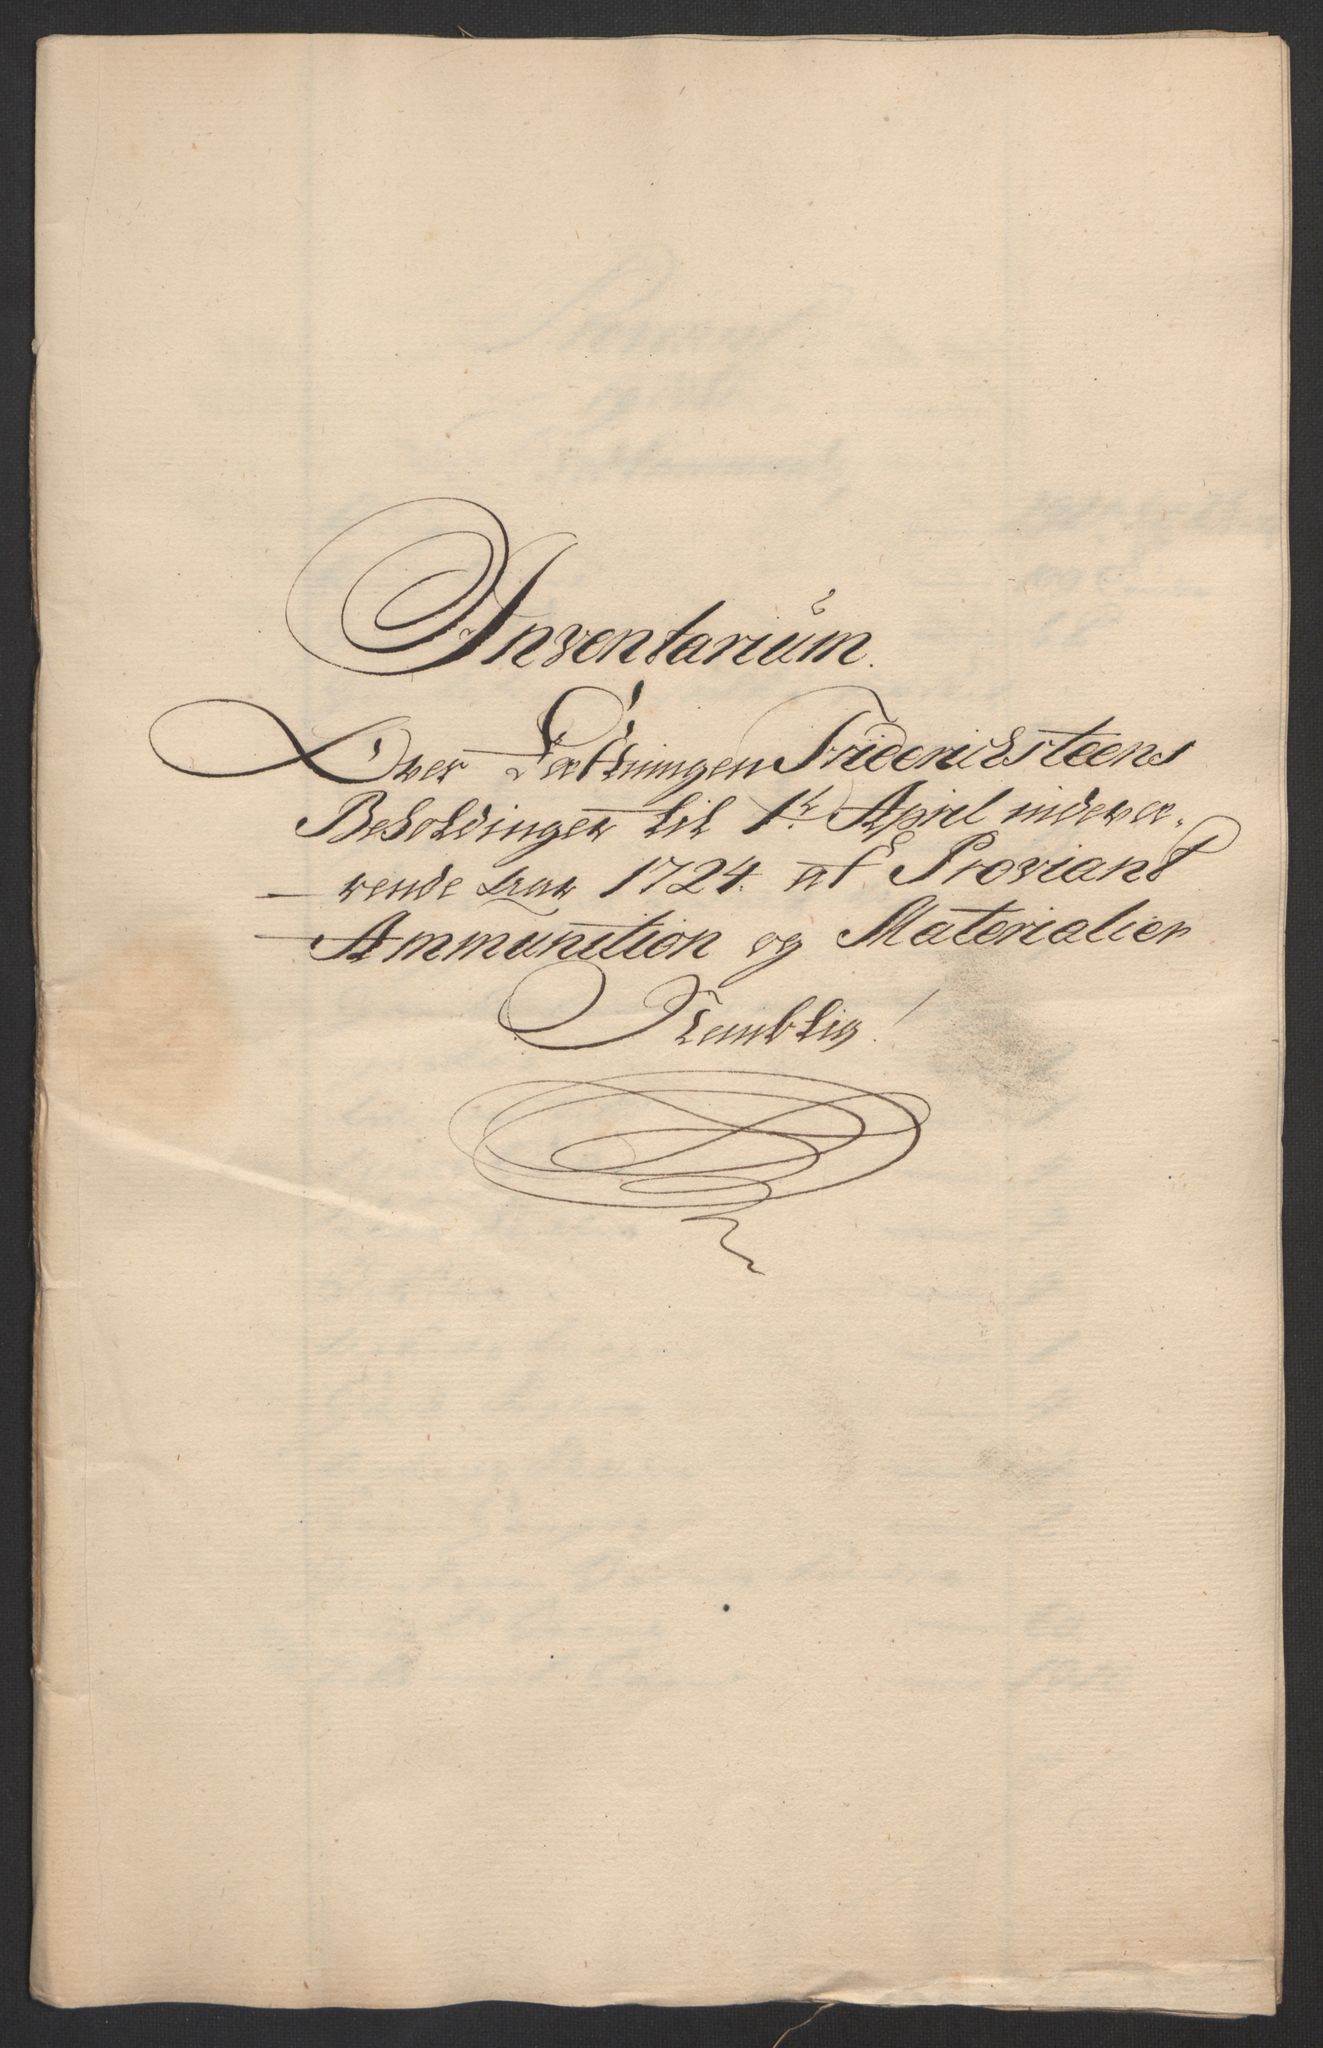 Inventarium.
Over Festningen Friderichsteens
Beholdinger til 1t. April indevæ-
rende Aar 1724. af Proviant
Ammunition og Materialier
Nemblig!